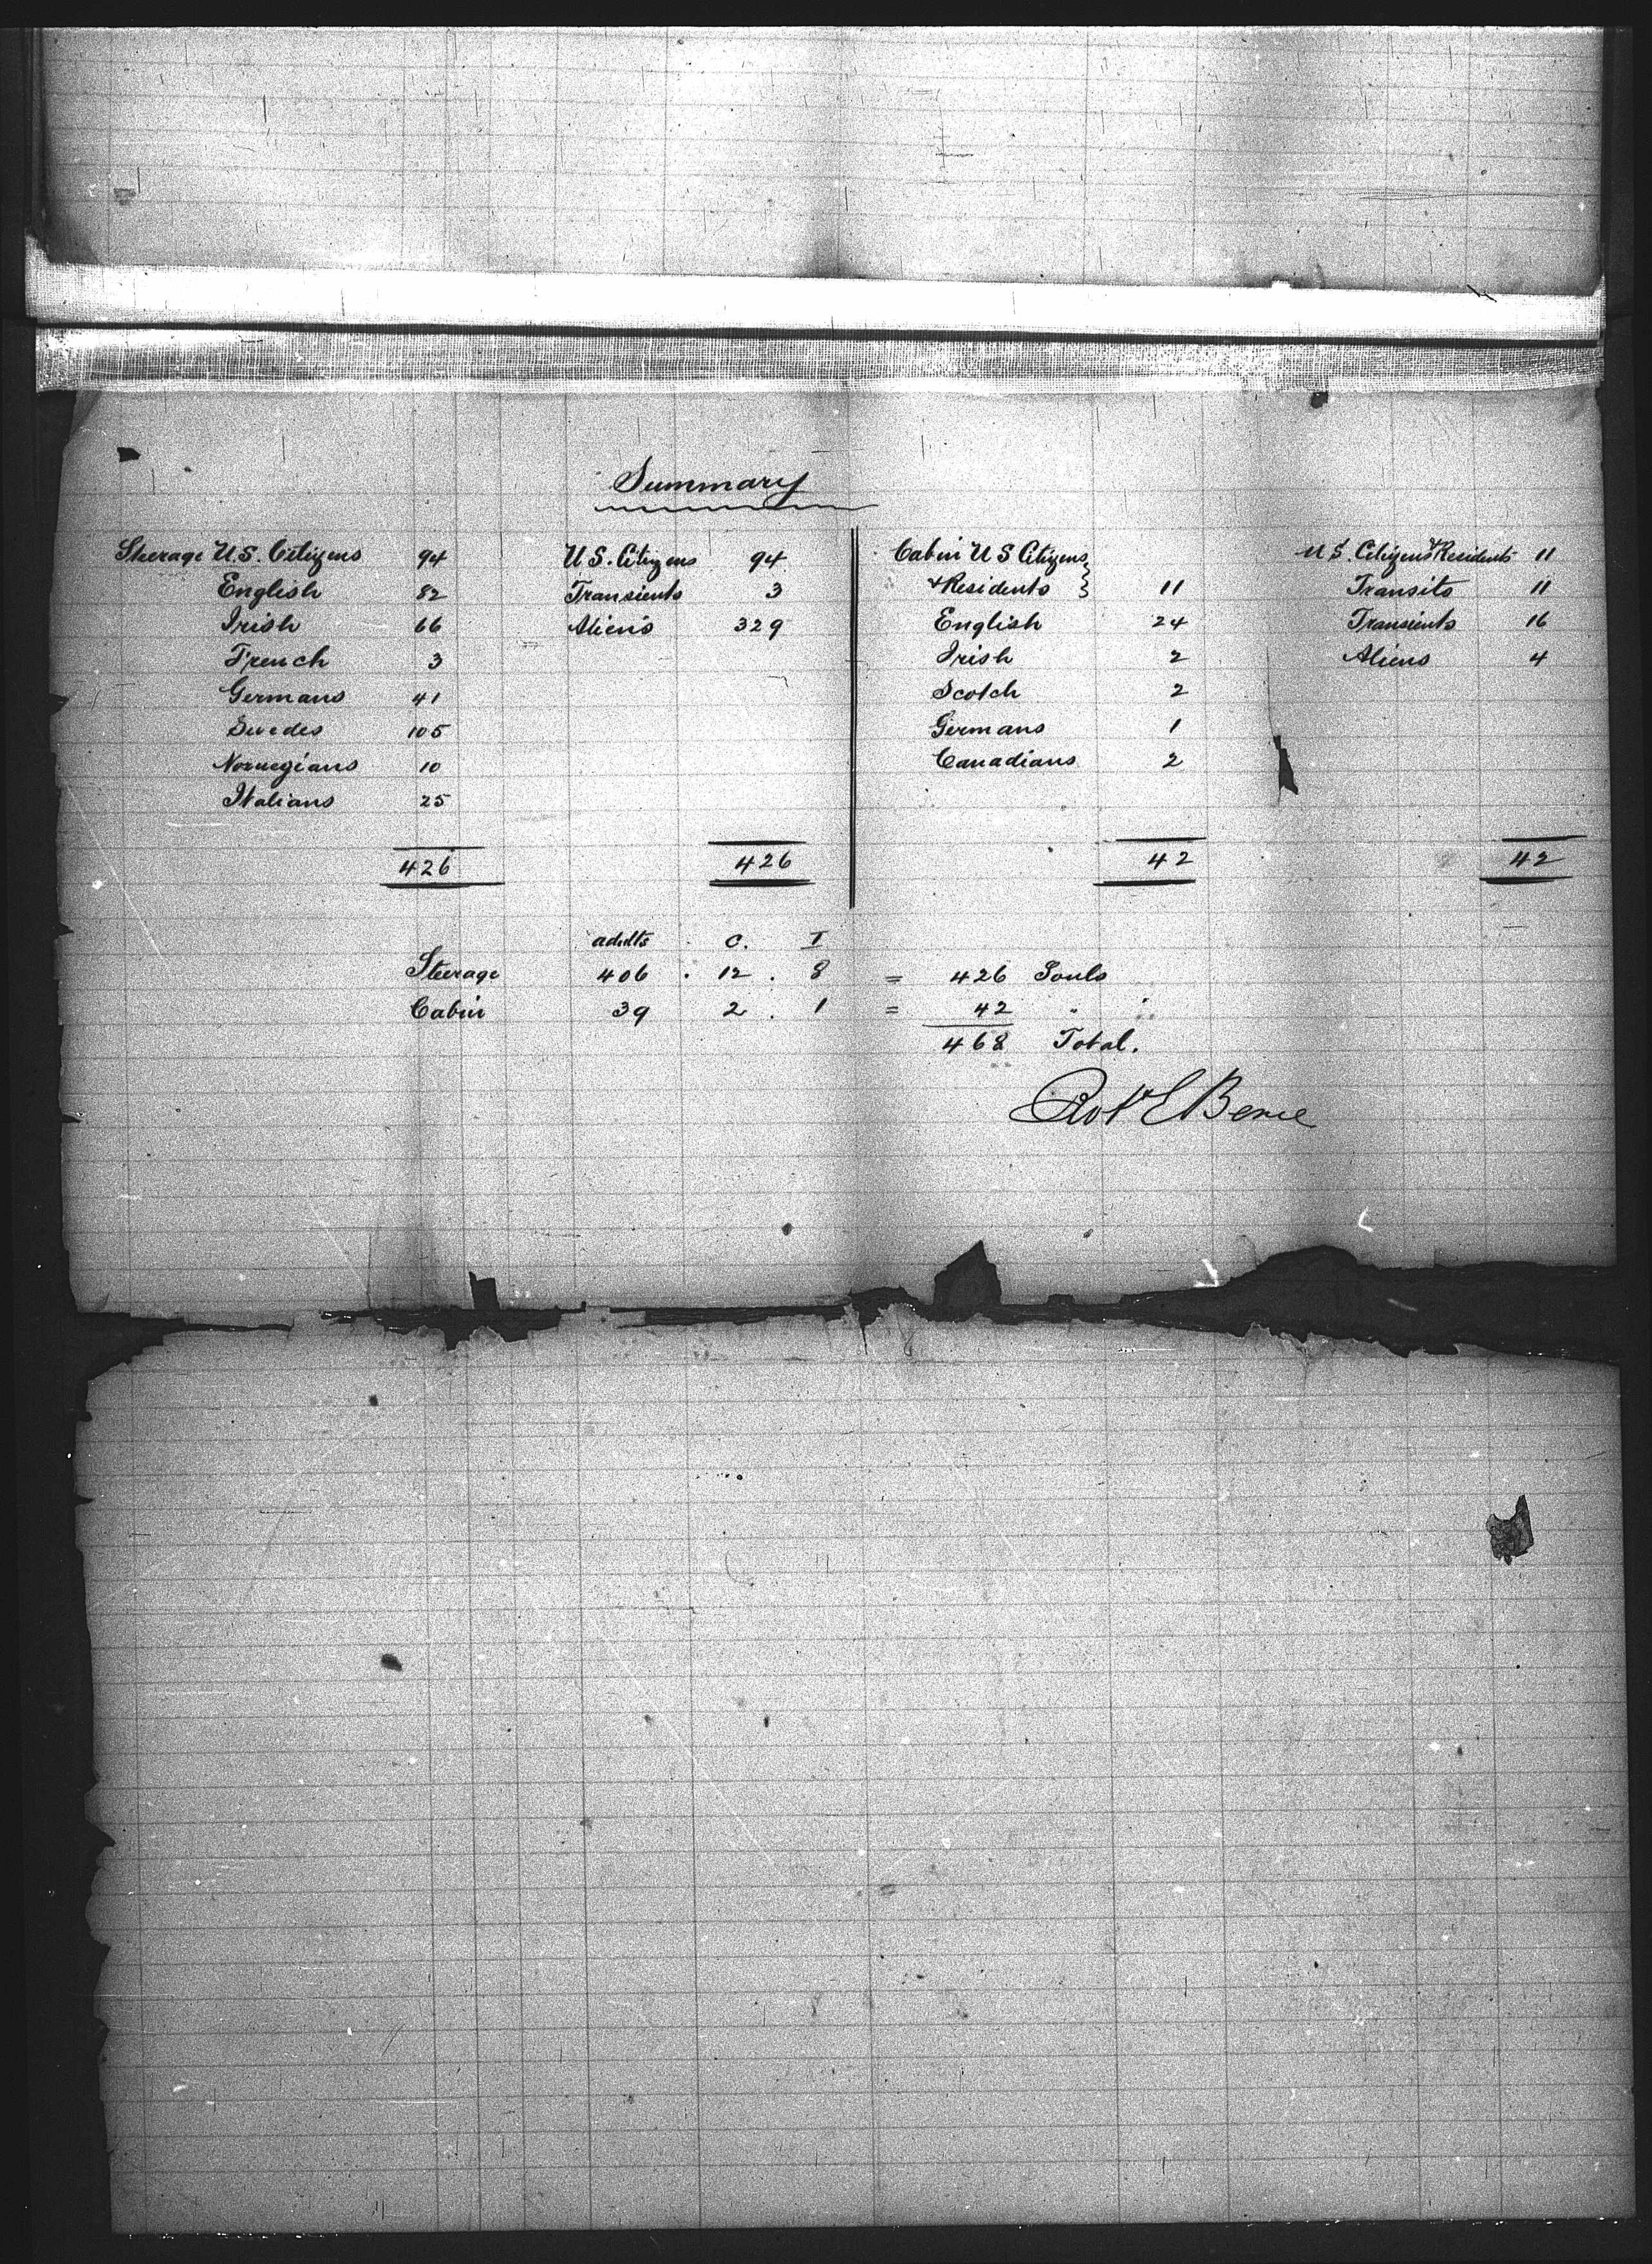 Summary
Steerage U.S. Citizens 94 U.S. Citizens 94 Cabin U S Citizens U.S. Citizens & Residents 11
English 82 Transients 3 & Residents } 11 Transits 11
Irish 66 Aliens 329 English 24 Transients 16
French 3 Irish 2 Aliens 4
Germans 41 Scotch 2
Swedes 105 Germans 1
Norwegians 10 Canadians 2
Italians 25
426 426 42 42
adults . C. I
Steerage 406 . 12 . 8 = 426 Souls
Cabin 39 2 . 1 = 42 "
468 Total.
Robt E